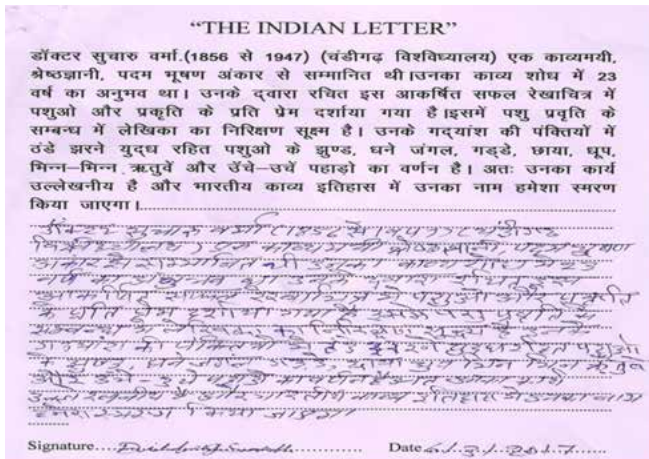 “THE INDIAN LETTER”
डॉक्टर सुचारु वर्मा.(1856 से 1947) (चंडीगढ़ विश्वविध्यालय) एक काव्यमयी,
श्रेष्ठज्ञानी, पदम भूषण अंकार से सम्मानित थी।उनका काव्य शोध में 23
वर्ष का अनुभव था। उनके द्वारा रचित इस आकर्षित सफल रेखाचित्र में
पशुओ और प्रकृति के प्रति प्रेम दर्शाया गया है।इसमें पशु प्रवृति के
सम्बन्ध में लेखिका का निरिक्षण सूक्ष्म है। उनके गद्यांश की पंक्तियों में
ठंडे झरने युद्ध रहित पशुओ के झुण्ड, धने जंगल, गड्डे, छाया, धूप,
भिन्न–भिन्न ऋतुवें और उँचे–उचें पहाड़ो का वर्णन है। अतः उनका कार्य
उल्लेखनीय है और भारतीय काव्य इतिहास में उनका नाम हमेशा स्मरण
किया जाएगा।
डॉक्टर सुचारु वर्मा (1856 से 1947) (चंडीगढ़
विश्वविध्यालय) एक काव्यमयी श्रेष्ठज्ञानी, पदम भूषण
अंकार से सम्मानित थी उनका काव्य शोध में 23
वर्ष का अनुभव था उनके द्वारा रचित इस
आकर्षित सफल रेखाचित्र में पशुओ और प्रकृति
के प्रति प्रेम दर्शाया गया है इसमें पशु प्रवृति के
सम्बन्ध में लेखिका का निरिक्षण सूक्ष्म है उनके
गद्यांश की पंक्तियों में ठंडे झरने युद्ध रहित पशुओ
के झुण्ड, धने जंगल गड्डे, छाया धूप भिन्न भिन्न
और उँचे–उचें पहाड़ो का वर्णन है अतः उनका कार्य
उल्लेखनीय है और भारतीय काव्य इतिहास में उनका नाम
हमेशा स्मरण किया जाएगा
Signature Date 6/3/2017